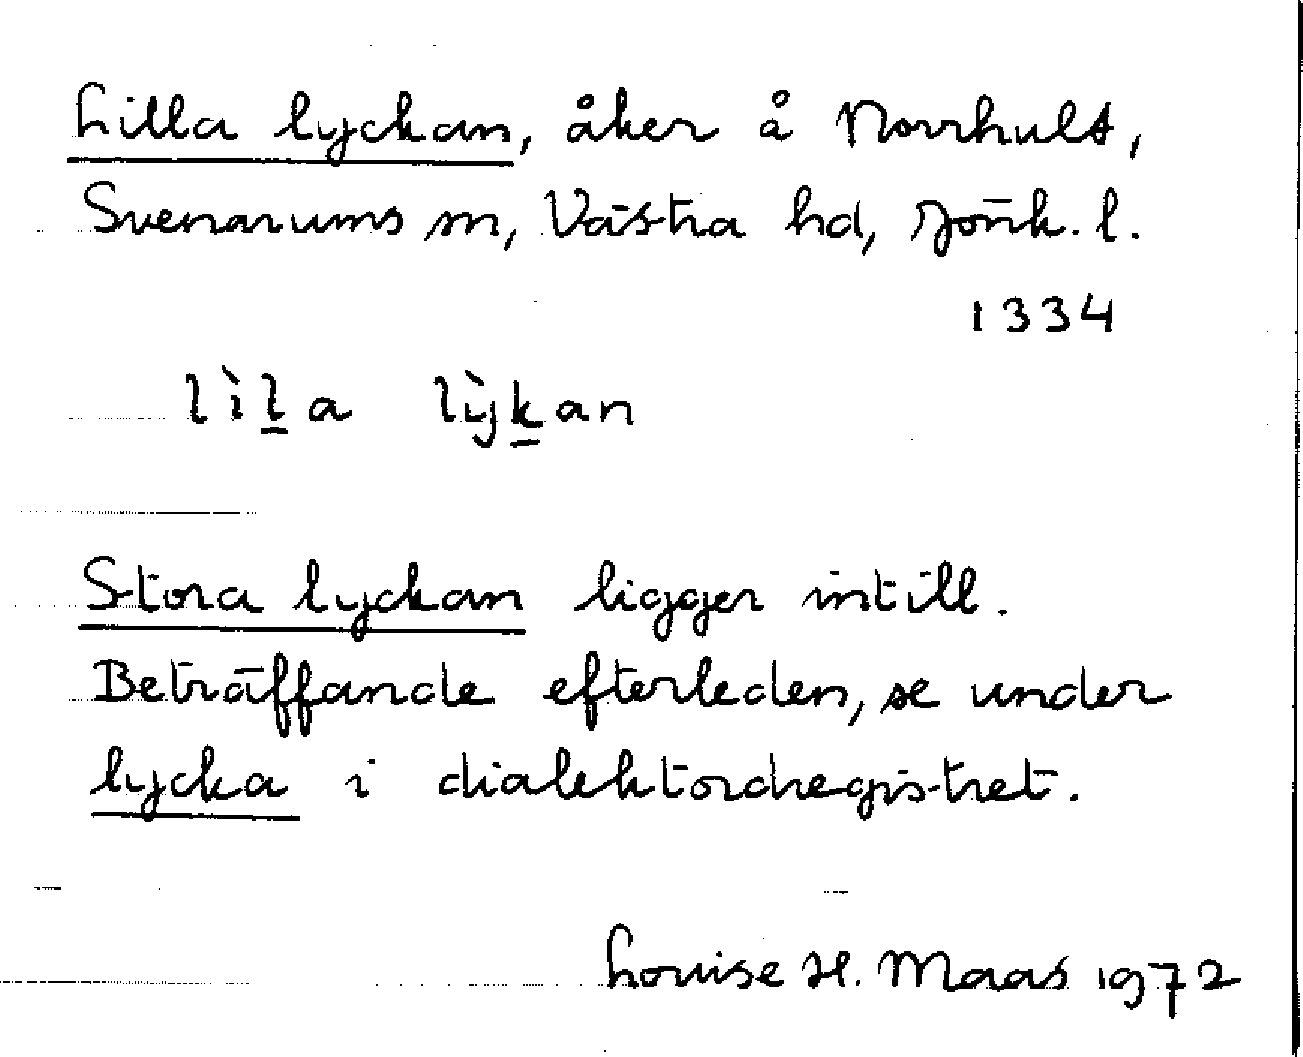 Lilla lyckan, åker å Norrhult,
Svenarums sn, Västra hd, Jönk. l.
1334
lìḻa lỳḵan
Stora lyckan ligger intill.
Beträffande efterleden, se under
lycka i dialektordregistret.
Louise H. Maas 1972